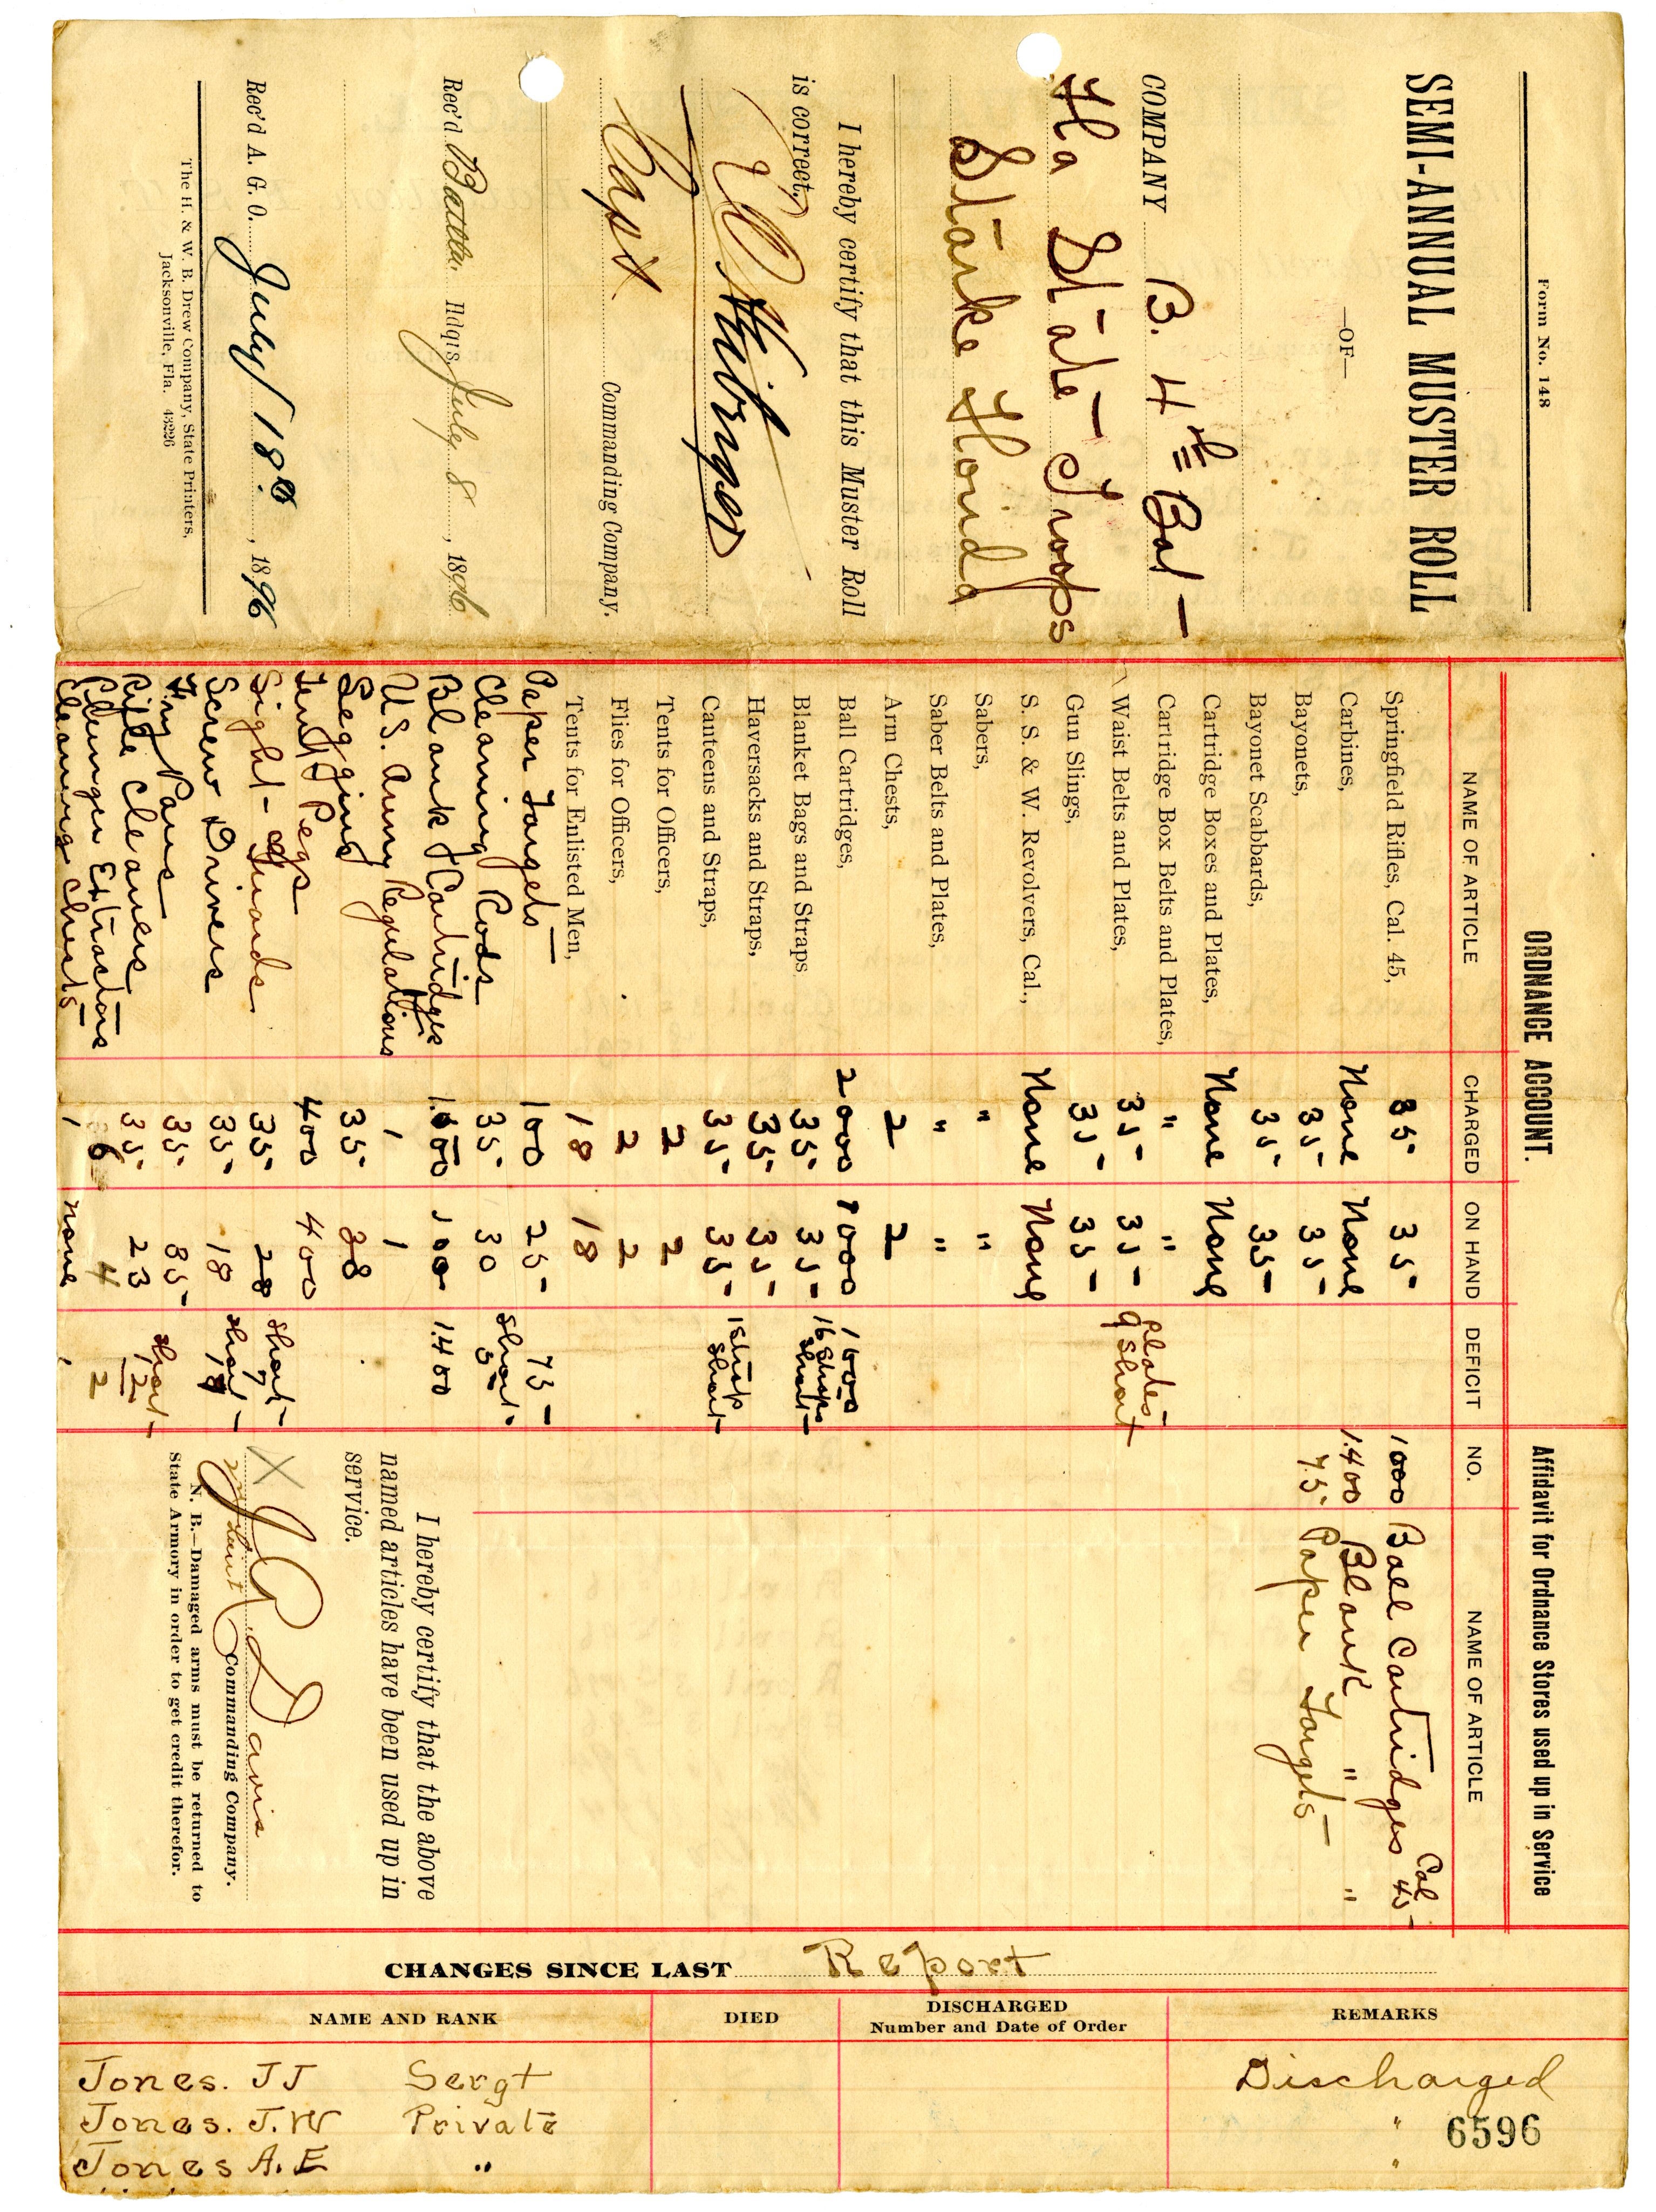 Form No. 148
SEMI-ANNUAL MUSTER ROLL
—OF—
COMPANY B. 4th Bat—
Fla State Troops
Starke Florida
I hereby certify that this Muster Roll
is correct,
Capt
Commanding Company.
Rec'd Battn. Hdqrs. July 8, 1896
Rec'd A. G. O. July 18, 1896
The H. & W. B. Drew Company, State Printers,
Jacksonville, Fla. 43226
ORDNANCE ACCOUNT.
NAME OF ARTICLE CHARGED ON HAND DEFICIT
Springfield Rifles, Cal. 45, 35 35
Carbines, None None
Bayonets, 35 35
Bayonet Scabbards, 35 35
Cartridge Boxes and Plates, None None
Cartridge Box Belts and Plates, " "
Waist Belts and Plates, 35 35 Plates 9 Short
Gun Slings, 35 35
S. S. & W. Revolvers, Cal., None None
Sabers, " "
Saber Belts and Plates, " "
Arm Chests, 2 2
Ball Cartridges, 2000 1000 1000
Blanket Bags and Straps 35 35 16 Straps Short
Haversacks and Straps, 35 35
Canteens and Straps, 35 35 1 Strap Short
Tents for Officers, 2 2
Flies for Officers, 2 2
Tents for Enlisted Men, 18 18
Paper Targets 100 25 75
Cleaning Rods 35 30 Short 5
Blank Cartridges 1500 100 1400
U.S. Army Regulations 1 1
Leggins 35 38
Tent Pegs 400 400
Sight Guards 35 28 Short 7
Screw Drivers 35 18 Short
Fry Pans 35 35
Rifle Cleaners 35 23 Short 12
Plunger Extractors 6 4 2
Cleaning Chests 1 none 1
Affidavit for Ordnance Stores used up in Service
NO. NAME OF ARTICLE
1000 Ball Cartridges Cal 45
1400 Blank " "
75 Paper Targets
I hereby certify that the above
named articles have been used up in
service.
X J C Davis
1st Lieut Commanding Company.
N. B.—Damaged arms must be returned to
State Armory in order to get credit therefor.
CHANGES SINCE LAST Report
NAME AND RANK DIED DISCHARGED Number and Date of Order REMARKS
Jones. J J Sergt Discharged
Jones. J. W Private "
6596
Jones A. E " "